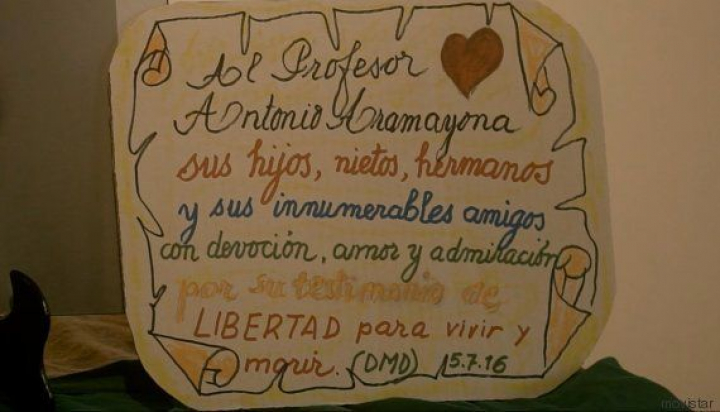 Al Profesor
Antonio Aramayona
sus hijos, nietos, hermanos
y sus innumerables amigos
con devoción, amor y admiración
por su testimonio de
LIBERTAD para vivir y
morir. (DMD) 15.7.16
movistar